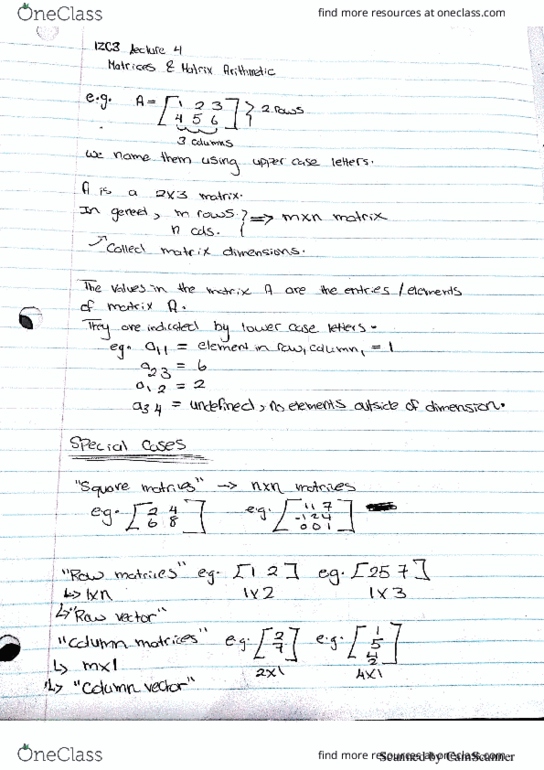 OneClass
find more resources at oneclass.com
1ZC3 Lecture 4
Matrices & Matrix Arithmetic
e.g. A = [1 2 3
4 5 6] } 2 rows
3 columns
We name them using upper case letters.
A is a 2x3 matrix.
In general, m rows. } => mxn matrix
n cols.
Called matrix dimensions.
The values in the matrix A are the entries / elements
of matrix A.
They are indicated by lower case letters.
eg. a11 = element in row1 column1 = 1
a23 = 6
a12 = 2
a34 = undefined, no elements outside of dimension.
Special Cases
"Square matrices" -> nxn matrices
eg. [2 4
6 8] eg. [1 1 7
-1 2 4
0 0 1]
"Row matrices" eg. [1 2] eg. [2 5 7]
↳ 1xn 1x2 1x3
↳ "Row vector"
"Column matrices" e.g. [2
7] e.g. [1
5
4
2]
↳ mx1 2x1 4x1
↳ "Column vector"
OneClass
find more resources at oneclass.com
Scanned by CamScanner